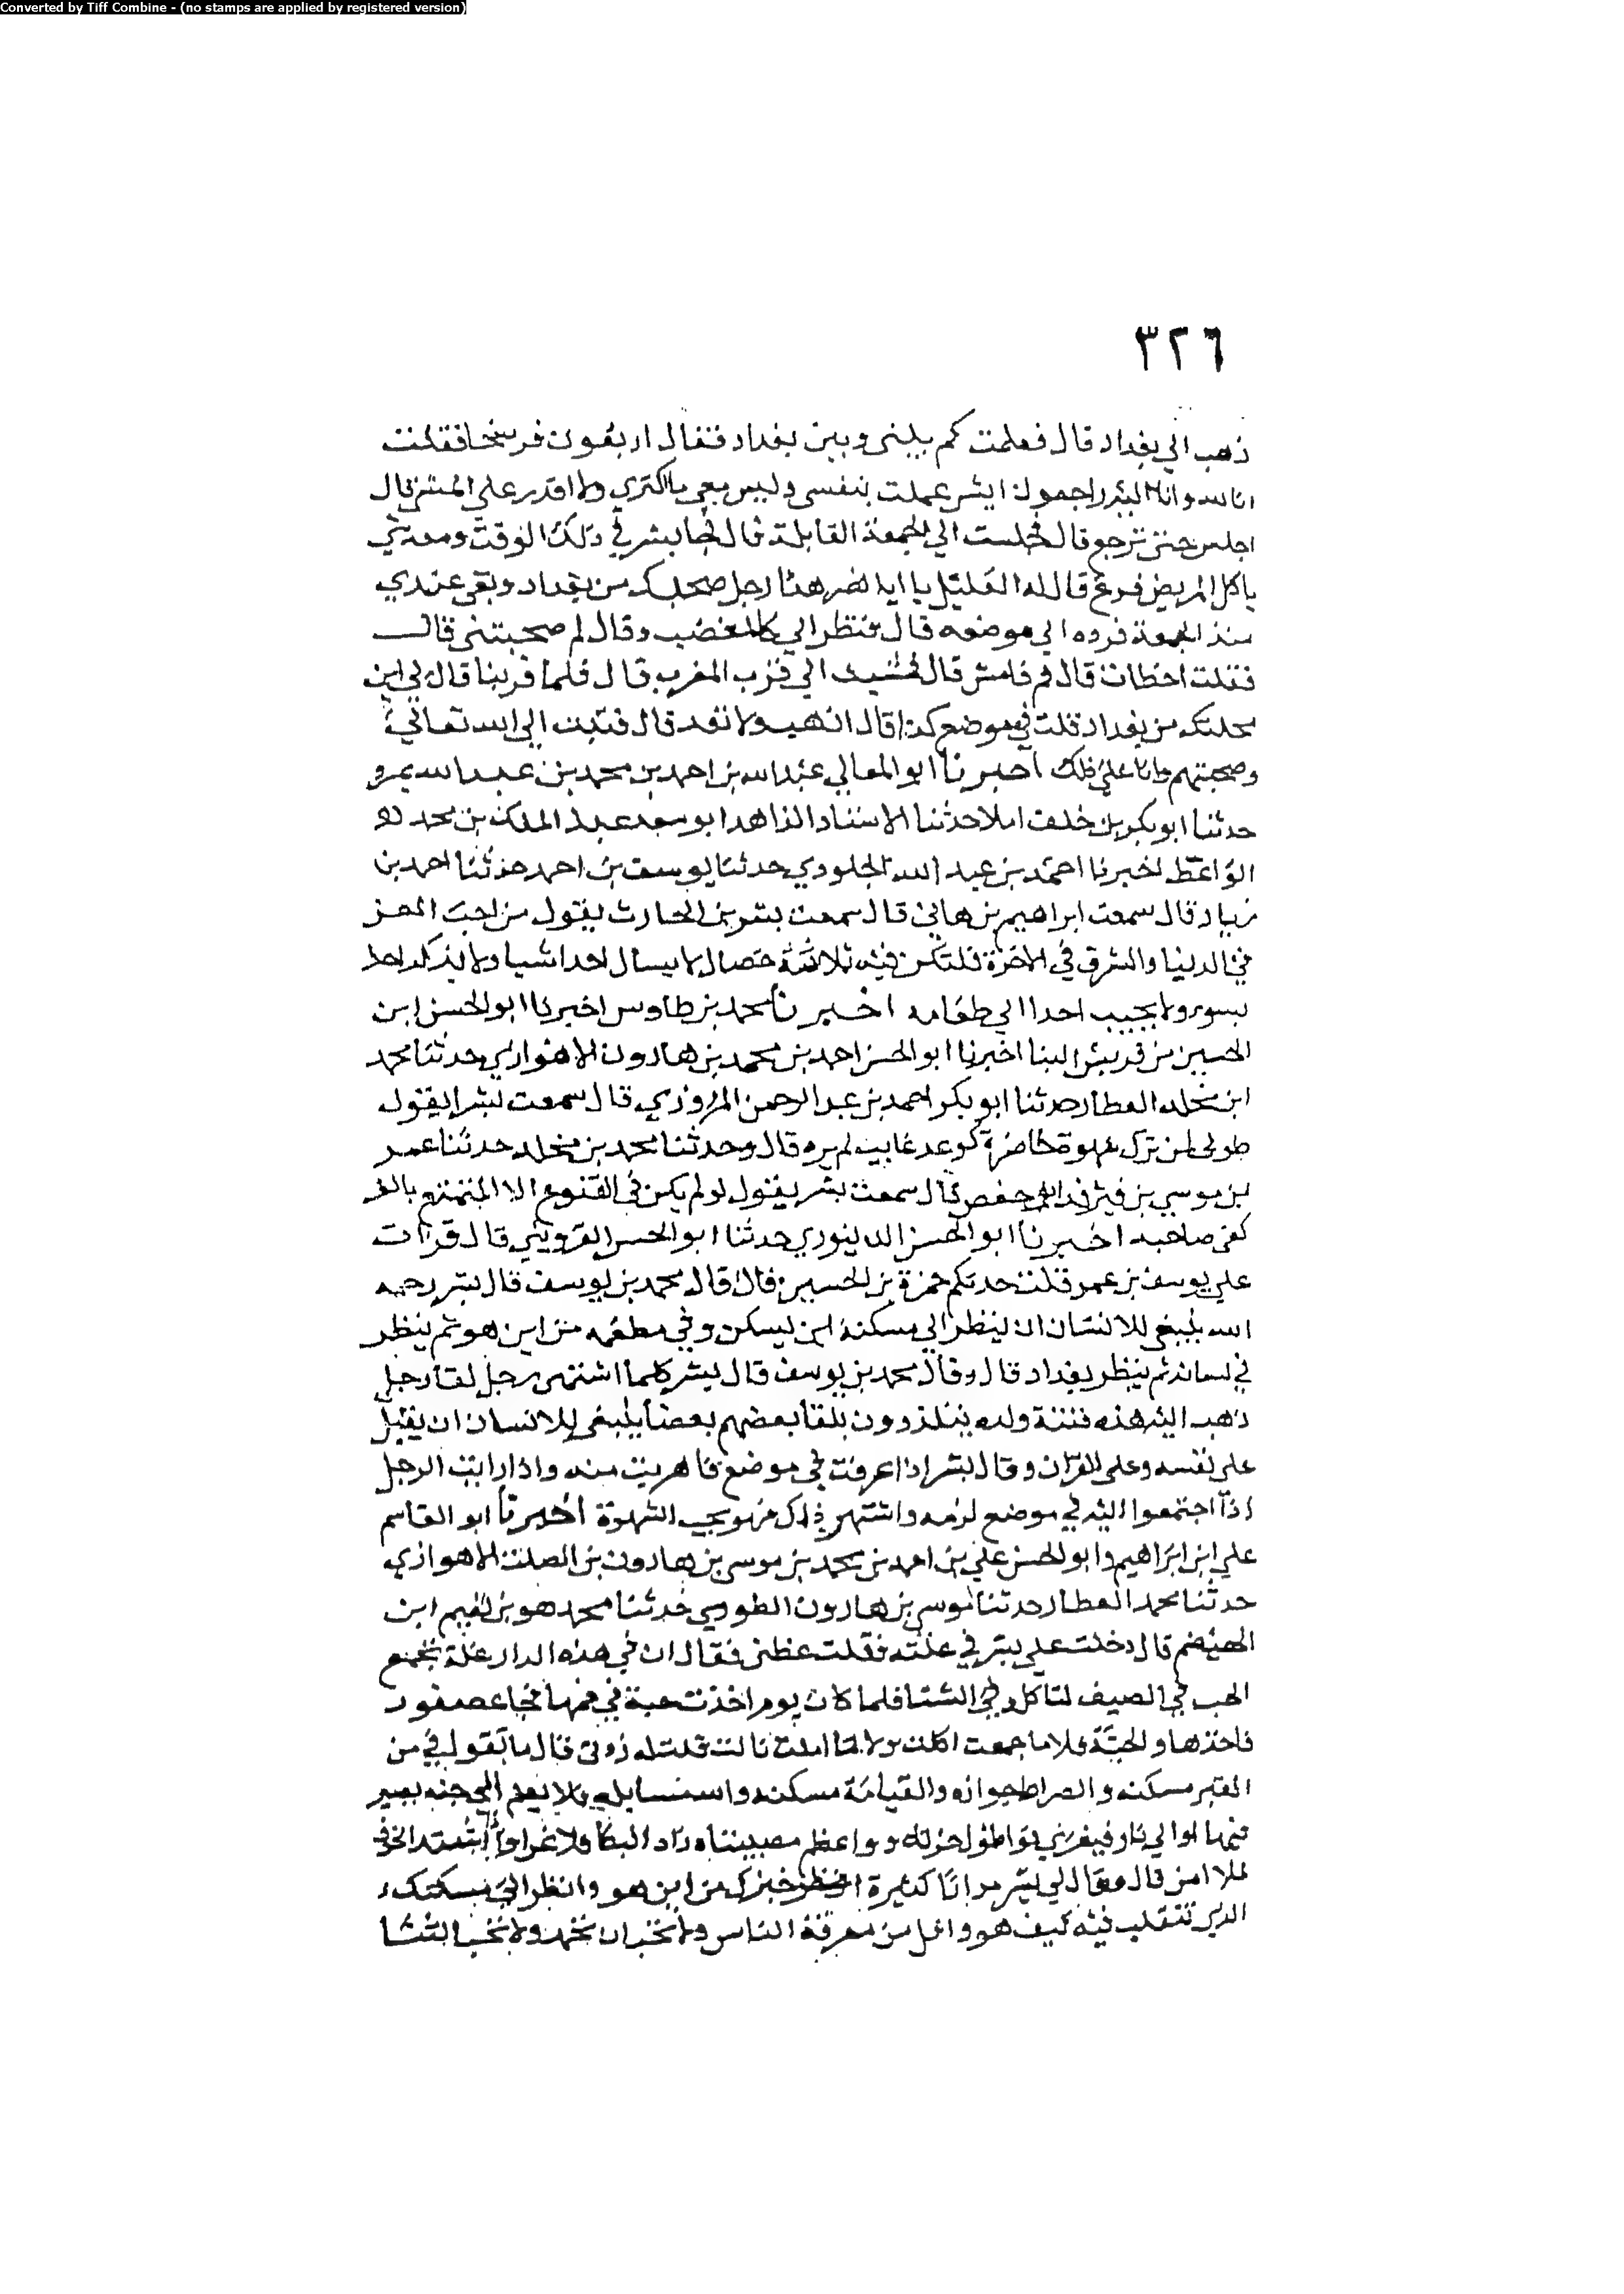 Converted by Tiff Combine - (no stamps are applied by registered version)
٣٢٦
ذهب الي بغداد قال فعلمت كم بيني وبين بغداد فقال اربعون فرسخا فقلت
انا لله وانا اليه راجعون ايش عملت بنفسي وليس معي ما اكتري ولا اقدر علي المشي قال
اجلس حتي ترجع قال فجلست الي الجمعة القابلة قال فجا بشر في ذلك الوقت ومعه شي
ياكل المريض فرغ قال له العليل يا ابا نصر هذا رجل صحبك من بغداد وبقي عندي
منذ الجمعة فرده الي موضعه قال فنظر الي كالمغضب وقال لم صحبتني قال
فقلت اخطات قال قم فامش قال فمشيت الي قرب المغرب قال فلما قربنا قال لي اين
محلتك من بغداد قلت في موضع كذا قال اذهب ولا تعد قال فتبت الي الله تعالي
وصحبتهم وانا علي ذلك اخبرنا ابو المعالي عبد الله بن احمد بن محمد بن عبد الله بمرو
حدثنا ابو بكر بن خلف املا حدثنا الاستاذ الزاهد ابو سعد عبد الملك بن محمد
الواعظ اخبرنا احمد بن عبد الله الجلودي حدثنا يوسف بن احمد حدثنا احمد بن
زياد قال سمعت ابراهيم بن هاني قال سمعت بشر بن الحارث يقول من احب العز
في الدنيا والشرف في الاخرة فلتكن فيه ثلاثة خصال لا يسال احدا شيا ولا يذكر احدا
بسوء ولا يجيب احدا الي طعامه اخبرنا محمد بن طاوس اخبرنا ابو الحسن ابن
الحسين بن قريش البنا اخبرنا ابو الحسن احمد بن محمد بن هارون الاهوازي حدثنا محمد
ابن مخلد العطار حدثنا ابو بكر احمد بن عبد الرحمن المروزي قال سمعت بشرا يقول
طوبي لمن ترك شهوة حاضرة لموعد غايب لم يره قال وحدثنا محمد بن مخلد حدثنا عمر
بن موسي بن حفص قال سمعت بشر يقول لو لم يكن في القنوع الا التمتع بالعز
كفي صاحبه اخبرنا ابو الحسن الدينوري حدثنا ابو الحسن القزويني قال قرات
علي يوسف بن عمر قلت حدثكم حمزة بن الحسين قال قال محمد بن يوسف قال بشر رحمه
الله ينبغي للانسان ان ينظر الي مسكنه اين يسكن وفي مطعمه من اين هو ثم ينظر
في لسانه ثم ينظر بغداد قال وقال محمد بن يوسف قال بشر كلما اشتهي رجل لقا رجل
ذهب اليه هذه فتنة ولده يتلذذون بلقا بعضهم بعضا ينبغي للانسان ان يقبل
علي نفسه وعلي القران وقال بشر اذا عرفت في موضع فاهرب منه واذا رايت الرجل
اذا اجتمعوا اليه في موضع لزمه واشتهي ذلك فهو يحب الشهوة اخبرنا ابو القاسم
علي ابن ابراهيم وابو الحسن علي بن احمد بن محمد بن موسي بن هارون بن الصلت الاهوازي
حدثنا محمد العطار حدثنا موسي بن هارون الطوسي حدثنا محمد هو بن نعيم ابن
الهيضم قال دخلت علي بشر في علته فقلت عظني فقال ان في هذه الدار نملة تجمع
الحب في الصيف لتاكله في الشتا فلما كان يوم اخذت حبة في فمها فجا عصفور
فاخذها والحبة فلا ما جمعت اكلت ولا ما املت نالت قلت له زدني قال ما تقول في من
القبر مسكنه والصراط جوازه والقيامة مسكنه والله مسايله فلا يعلم الي جنة يصير
فيهنا او الي نار فيعزي فوا طول حزناه ووا عظم مصيبتاه زاد البكا فلا عزا واشتد الخوف
فلا امن قال وقال لي بشر مرارا كثيرة انظر خبزك من اين هو وانظر الي مسكنك
الذي تتقلب فيه كيف هو واقل من معرفة الناس ولا تحب ان تحمد ولا تحب الثنا